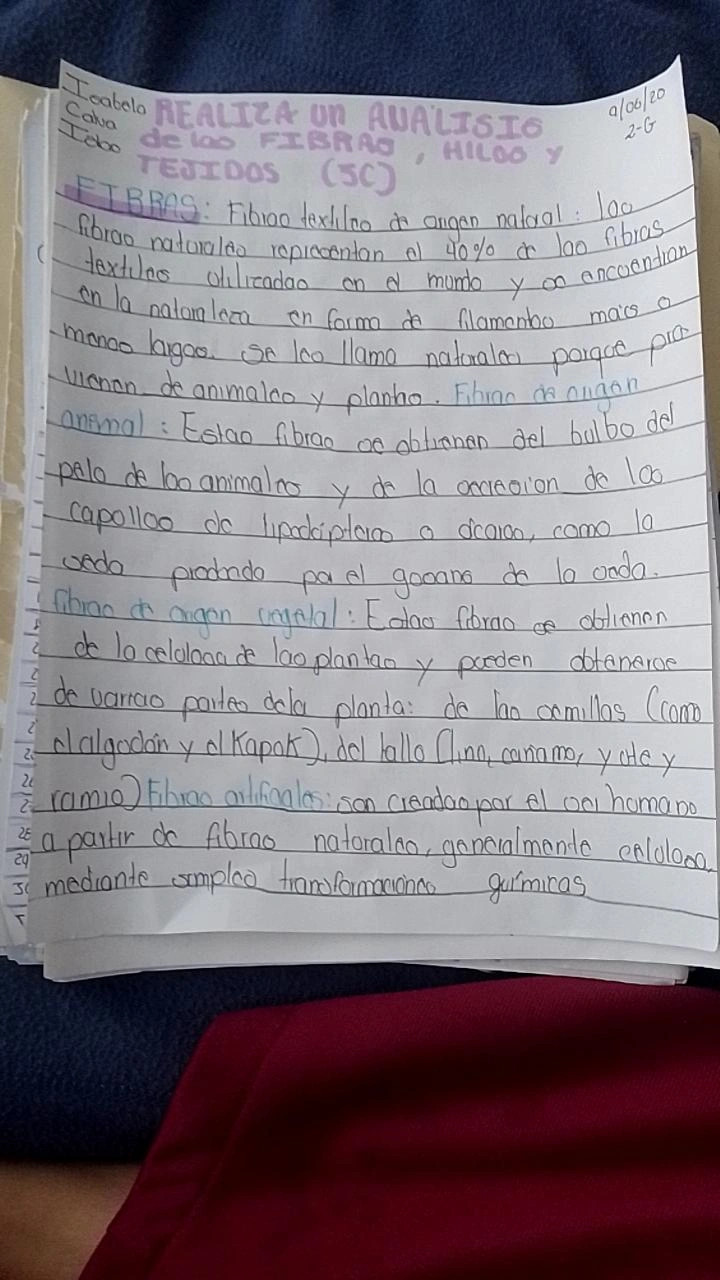 Isabela
Calva
9/06/20
2-G
REALIZA UN ANALISIS
de las FIBRAS, HILOS Y
TEJIDOS (SC)
FIBRAS: Fibras textiles de origen natural: las
fibras naturales representan el 40% de las fibras
textiles utilizadas en el mundo y se encuentran
en la naturaleza en forma de filamentos mais o
menos largos. Se les llama naturales porque pro
vienen de animales y plantas. Fibras de origen
animal: Estas fibras se obtienen del bulbo del
pelo de los animales y de la secresion de los
capollos de o como la
seda por el gusano de la seda.
fibras de origen vegetal: Estas fibras se obtienen
de la celulosa de las plantas y pueden obtenerse
de varias partes dela planta: de las semillas (como
el algodón y el Kapok), del tallo (lino, cañamo, yute y
ramio) Fibras artificiales: son creadas por el ser humano
a partir de fibras naturales, generalmente celulosa,
mediante simples transformaciones químicas